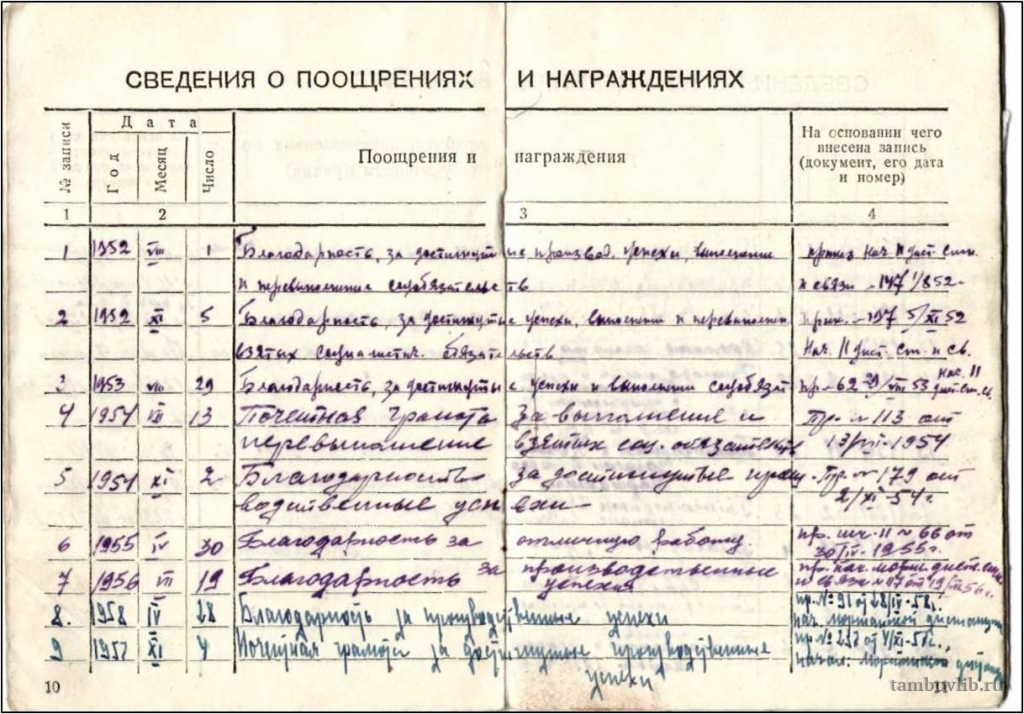 СВЕДЕНИЯ О ПООЩРЕНИЯХ И НАГРАЖДЕНИЯХ
№ записи Дата Поощрения и награждения На основании чего внесена запись (документ, его дата и номер)
Год Месяц Число
1 2 3 4
1 1952 VIII 1 Благодарность, за достигнутые производ. успехи, выполнение
и перевыполнение соцобязательств
2 1952 XI 5 Благодарность, за достигнутые успехи, выполнении и перевыполн. прик. - 197 5/XI 52
взятых социалистич. обязательств Нач. 11 дист. сиг. и св.
3 1953 VII 29 Благодарность, за достигнутые успехи и выполнении соцобязат. пр- 62 29/VII 53 нач. 11 дист. с.
4 1954 13 Почетная грамота за выполнение и Пр. № 113 от
перевыполнение взятых соц. обязательств 1954
5 1954 XI 2 Благодарность за достигнутые произ- Пр. № 179 от
водственные успехи 2/XI-54г.
6 1955 IV 30 Благодарность за отличную работу. пр. шч. 11 № 66 от
30/IV-1955г.
7 1956 VII 19 Благодарность за производственные пр. нач. морш. дист. сигн.
успехи и связи № 97 от 19/VII 56г.
8. 1958 IV 28 Благодарность за производственные успехи пр. № 91 от 28/IV-58г.
нач. моршанской дистанции
9 XI 4 Почетная грамота за достигнутые производственные пр. № 4/XI
успехи начал. моршанской дистанц
10 11
tambuvlib.ru